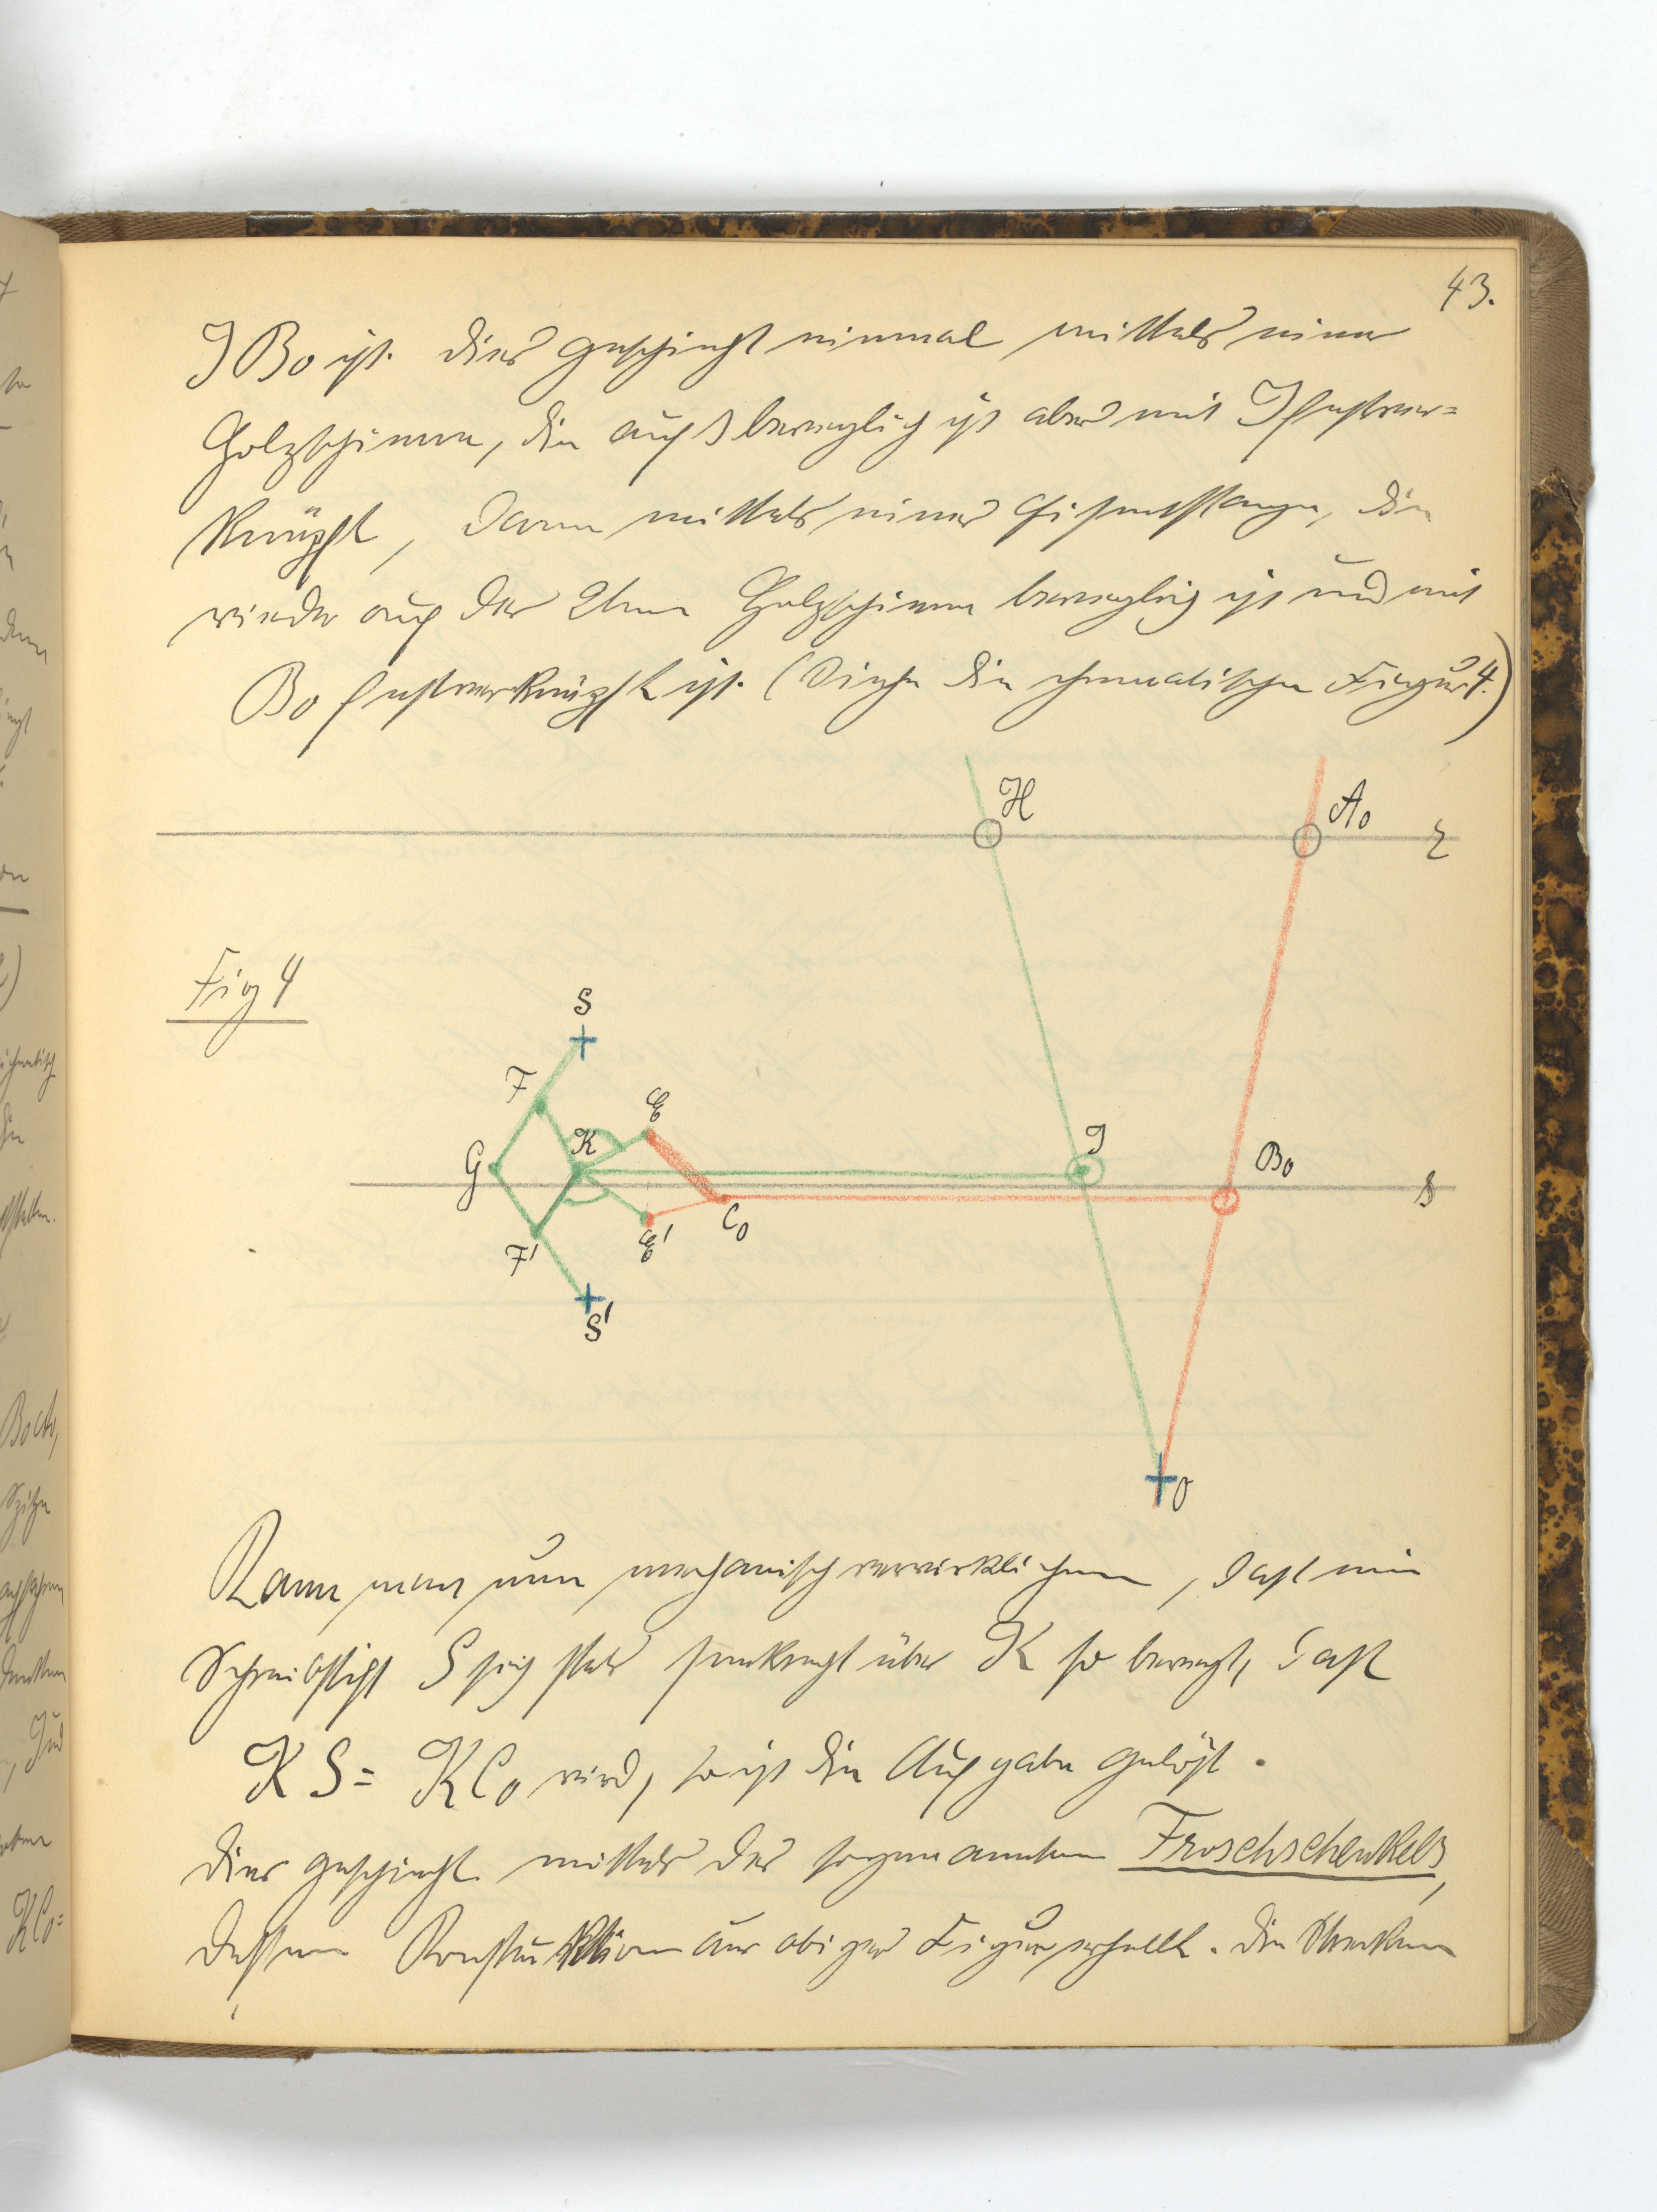 43.
J B₀ ist. Dies geschieht einmal mittels einer
Holzschiene, die auf s beweglich ist aber mit J festver=
knüpft, dann mittels einer Eisenstange, die
wieder auf der Holzschiene beweglich ist und mit
B₀ festverknüpft ist. (Siehe die schematische Figur 4.)
H
A₀
Σ
Fig 4
S
F
E
K
J
G
B₀
s
C₀
E'
F'
S'
O
Kann man nun mechanisch verwirklichen, daß ein
Schreibstift S sich stets senkrecht über K so bewegt, daß
KS = KC₀ wird, so ist die Aufgabe gelöst.
Dies geschieht mittels des sogenannten Froschschenkels,
dessen Konstruktion aus obiger Figur erhellt. Die Strecken